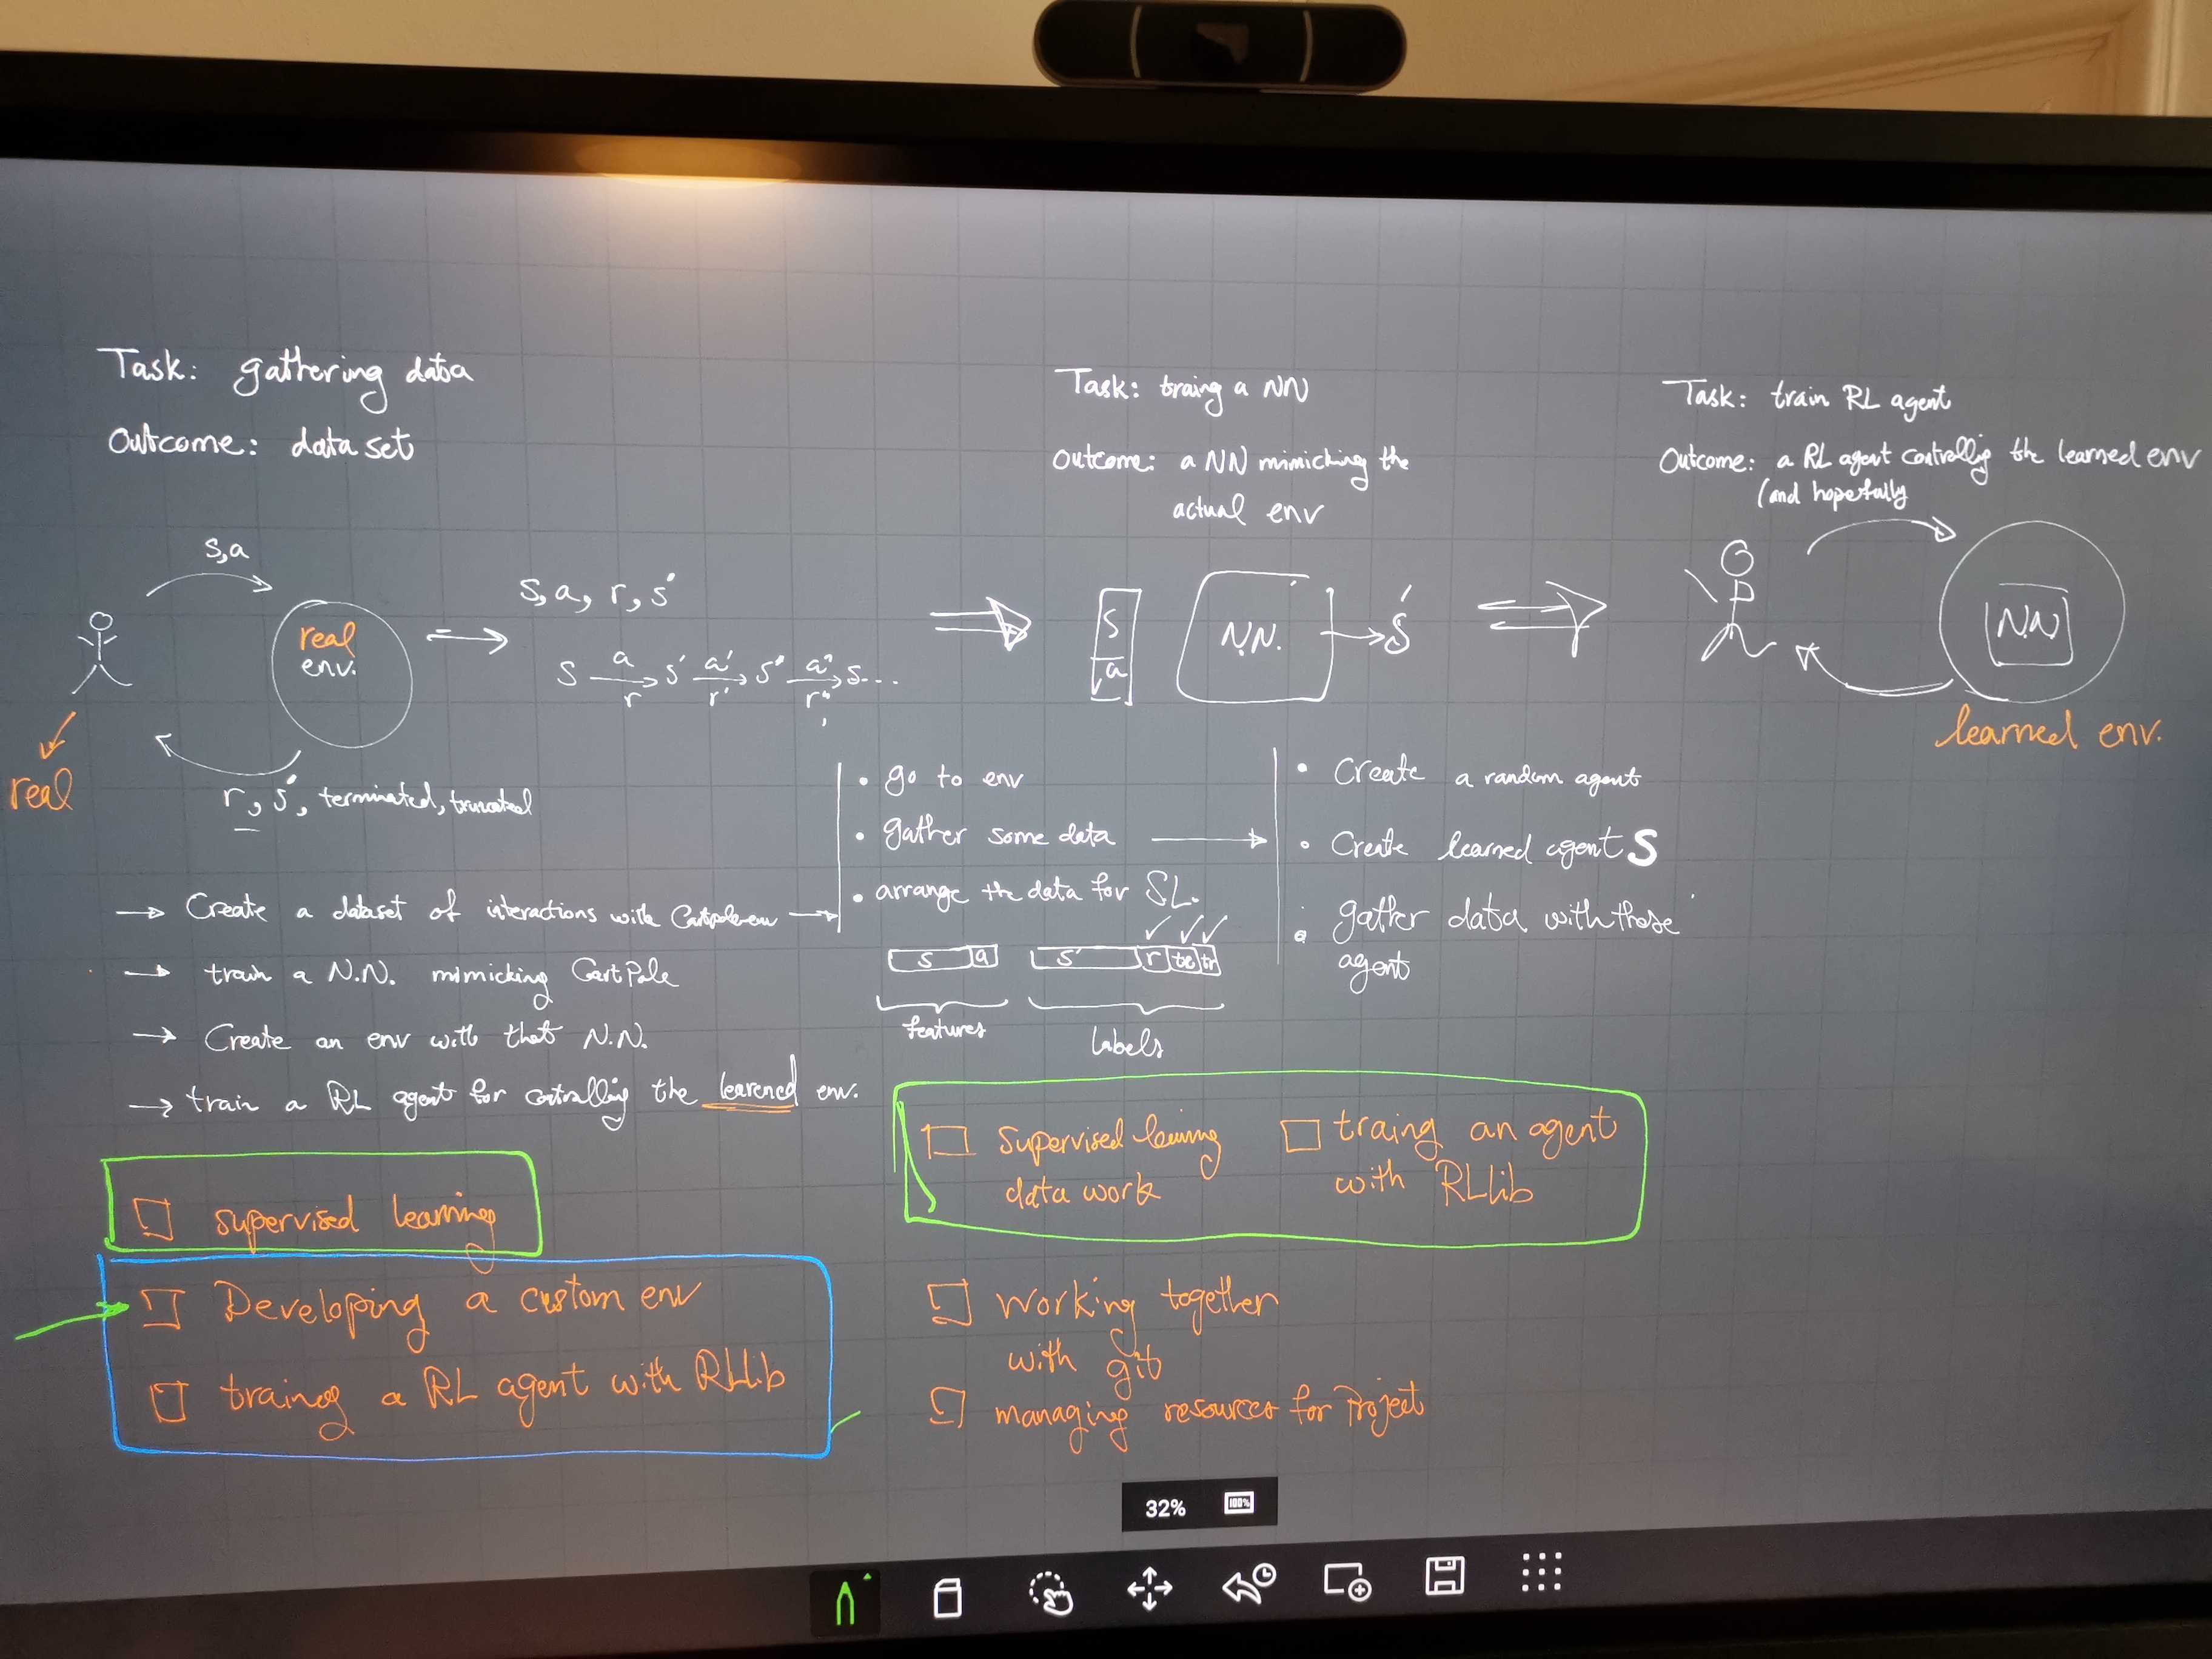 Task: gathering data
Outcome: data set
s,a
real
env.
real
r, s', terminated, truncated
s, a, r, s'
s a r s' a' r' s" a" r" s...
Task: traing a NN
Outcome: a NN mimicking the
actual env
s
a
N.N.
s'
Task: train RL agent
Outcome: a RL agent controllig the learned env
(and hopefully
NN
learned env.
→ Create a dataset of interactions with Cartpole env →
→ train a N.N. mimicking CartPole
→ Create an env with that N.N.
→ train a RL agent for controllig the learened env.
• go to env
• gather some data →
• arrange the data for SL.
s a s' r te tr
features
labels
• Create a random agent
• Create learned agent S
• gather data with those
agent
supervised learning
Developing a custom env
traineg a RL agent with RLlib
supervised learning
data work
traing an agent
with RLlib
working together
with git
managing resources for Project
32%
100%